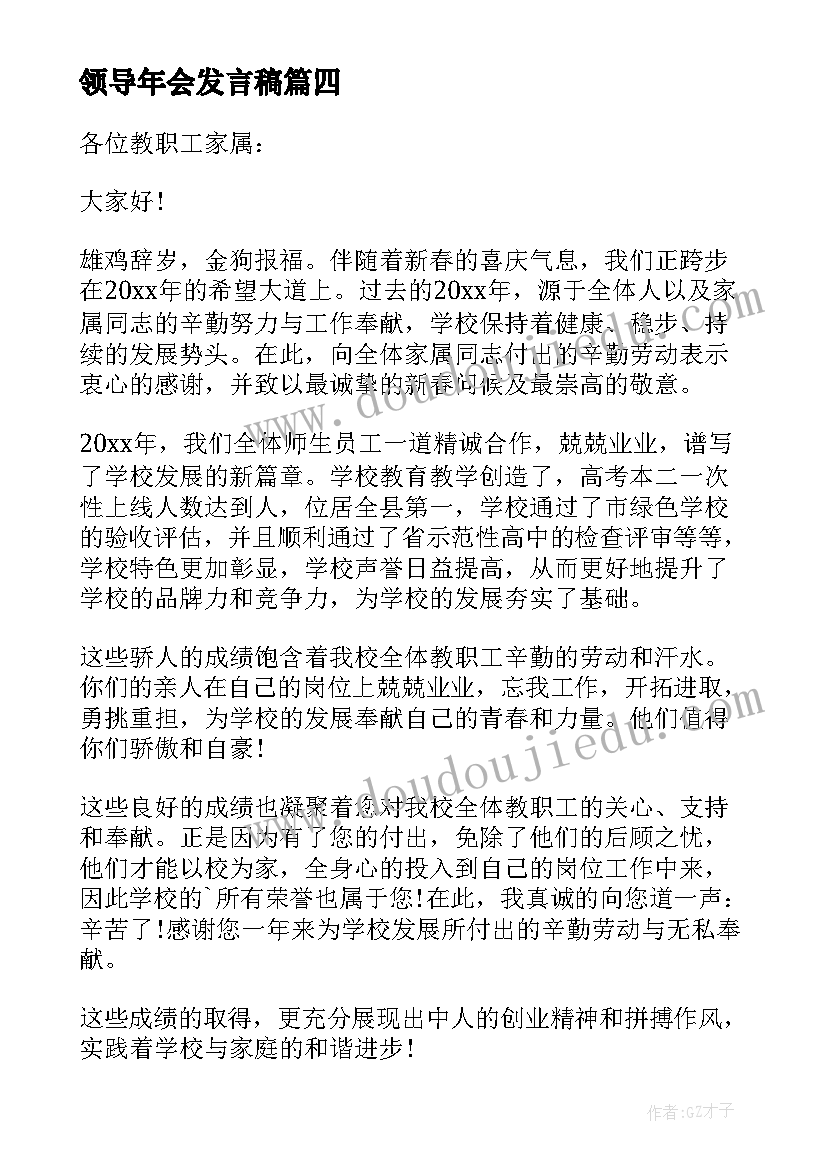 领导年会发言稿篇四
各位教职工家属：
大家好！
雄鸡辞岁，金狗报福。伴随着新春的喜庆气息，我们正跨步
在20xx年的希望大道上。过去的20xx年，源于全体人以及家
属同志的辛勤努力与工作奉献，学校保持着健康、稳步、持
续的发展势头。在此，向全体家属同志付出的辛勤劳动表示
衷心的感谢，并致以最诚挚的新春问候及最崇高的敬意。
20xx年，我们全体师生员工一道精诚合作，兢兢业业，谱写
了学校发展的新篇章。学校教育教学创造了，高考本二一次
性上线人数达到人，位居全县第一，学校通过了市绿色学校
的验收评估，并且顺利通过了省示范性高中的检查评审等等，
学校特色更加彰显，学校声誉日益提高，从而更好地提升了
学校的品牌力和竞争力，为学校的发展夯实了基础。
这些骄人的成绩饱含着我校全体教职工辛勤的劳动和汗水。
你们的亲人在自己的岗位上兢兢业业，忘我工作，开拓进取，
勇挑重担，为学校的发展奉献自己的青春和力量。他们值得
你们骄傲和自豪！
这些良好的成绩也凝聚着您对我校全体教职工的关心、支持
和奉献。正是因为有了您的付出，免除了他们的后顾之忧，
他们才能以校为家，全身心的投入到自己的岗位工作中来，
因此学校的`所有荣誉也属于您！在此，我真诚的向您道一声：
辛苦了！感谢您一年来为学校发展所付出的辛勤劳动与无私奉
献。
这些成绩的取得，更充分展现出中人的创业精神和拼搏作风，
实践着学校与家庭的和谐进步！
www.doudoujiedu.com
www.doudoujiedu.com
作者:GZ才子